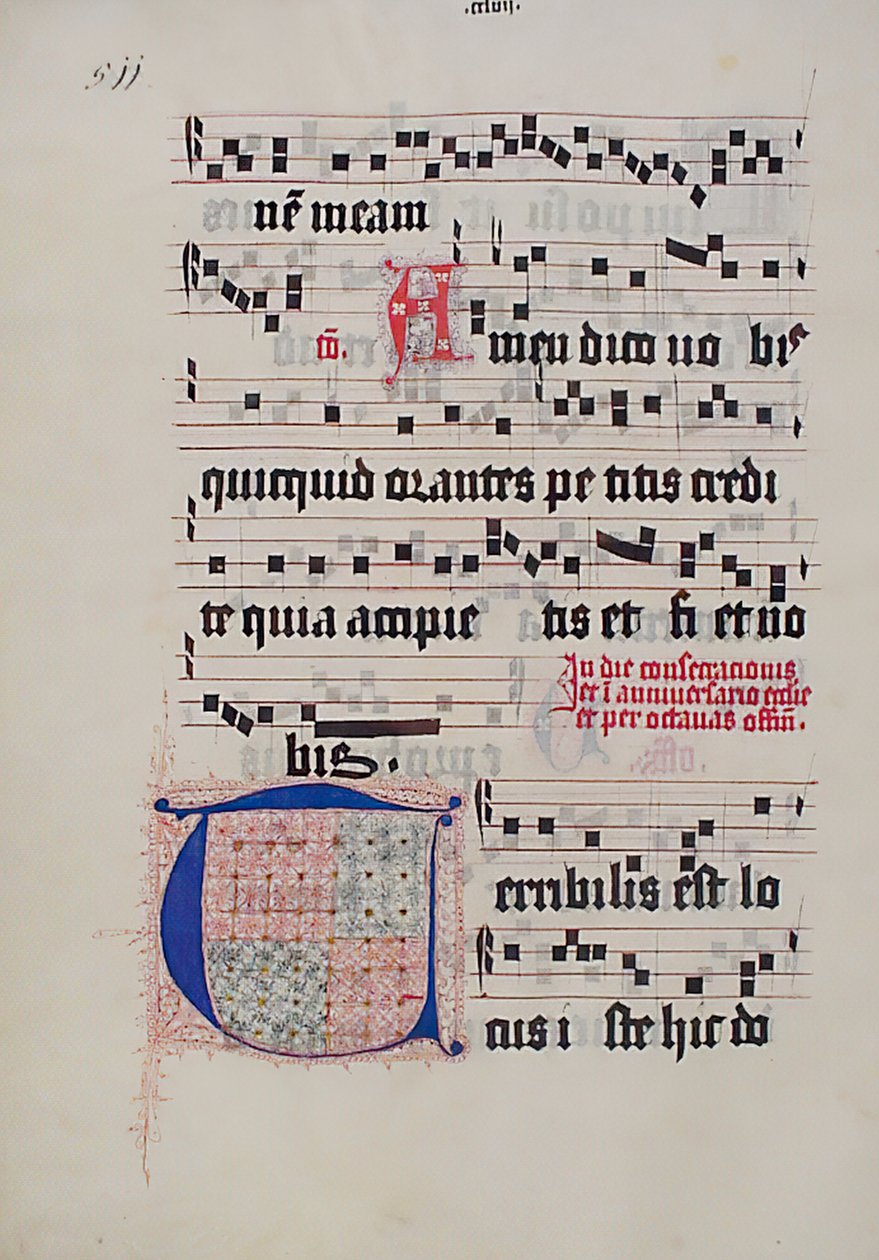 nē meam
cō. Amen dico uo bis
quicquid orantes pe titis credi
te quia accipie tis et fi et uo
In die consecracionis
et ī anniuersario ecclie
et per octauas offm̄.
bis.
Terribilis est lo
cus i ste hic do